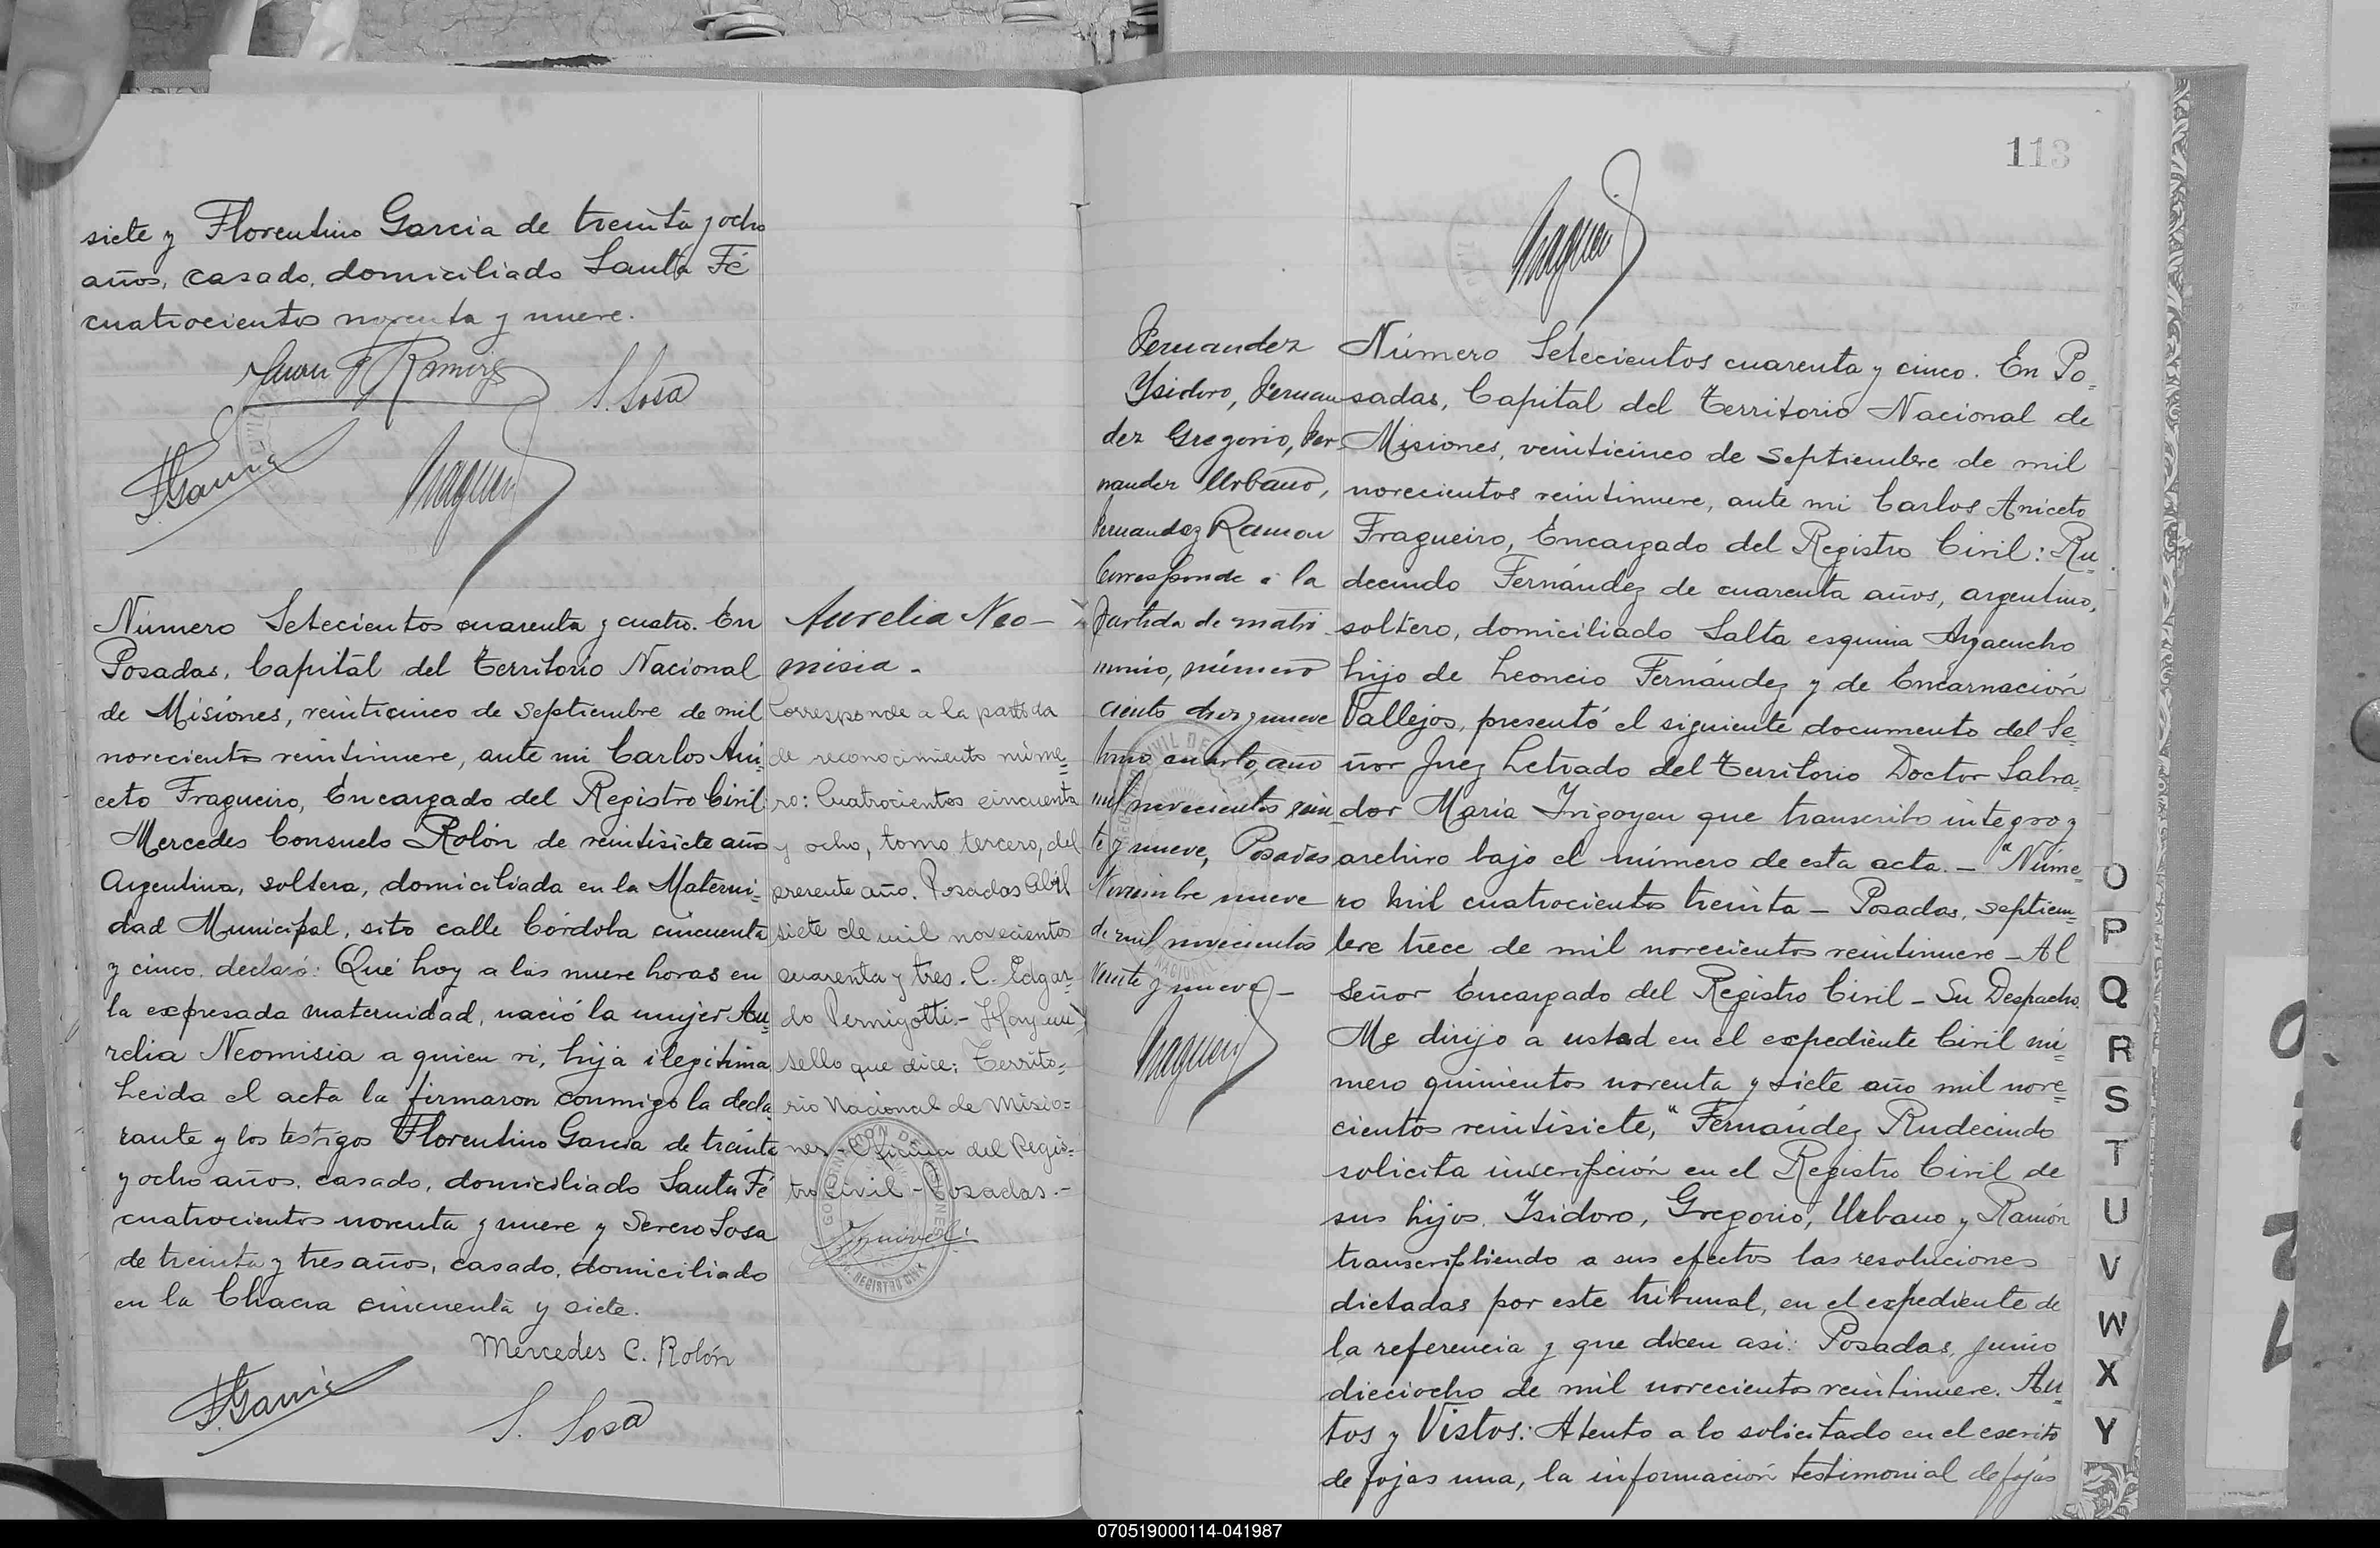 siete y Florentino Garcia de treinta y ocho
años, casado, domiciliado Santa Fé
cuatrocientos noventa y nueve.
Juan F Ramirez
S. Sosa
FGarcia
Número Setecientos cuarenta y cuatro. En
Posadas, Capital del Territorio Nacional
de Misiones, veinticinco de Septiembre de mil
novecientos veintinueve, ante mi Carlos Ani=
ceto Fragueiro, Encargado del Registro Civil
Mercedes Consuelo Rolón de veintisiete años
Argentina, soltera, domiciliada en la Materni=
dad Municipal, sito calle Córdoba cincuenta
y cinco, declaró: Que hoy a las nueve horas en
la expresada maternidad, nació la mujer Au=
relia Neomisia a quien vi, hija ilegitima
Leida el acta la firmaron conmigo la decla
rante y los testigos Florentino Garcia de treinta
y ocho años, casado, domiciliado Santa Fé
cuatrocientos noventa y nueve y Severo Sosa
de treinta y tres años, casado, domiciliado
en la Chacra cincuenta y siete.
Mercedes C. Rolón
FGarcia
S. Sosa
Aurelia Neo-
misia.
Corresponde a la partida
de reconocimiento núme=
ro: Cuatrocientos cincuenta
y ocho, tomo tercero, del
presente año. Posadas Abril
siete de mil novecientos
cuarenta y tres. C. Edgar=
do Pernigotti.- Hay un
sello que dice: Territo=
rio Nacional de Misio=
nes - Oficina del Regis=
tro Civil - Posadas.-
113
Fernandez
Ysidoro, Fernan
dez Gregorio, Fer-
nandez Urbano,
Fernandez Ramon
Corresponde a la
partida de matri
monio, número
ciento diez y nueve
tomo cuarto, año
mil novecientos vein
te y nueve, Posadas
Noviembre nueve
de mil novecientos
veinte y nueve-
Número Setecientos cuarenta y cinco. En Po=
sadas, Capital del Territorio Nacional de
Misiones, veinticinco de Septiembre de mil
novecientos veintinueve, ante mi Carlos Aniceto
Fragueiro, Encargado del Registro Civil: Ru=
decindo Fernández de cuarenta años, argentino,
soltero, domiciliado Salta esquina Ayacucho
hijo de Leoncio Fernández y de Encarnación
Vallejos, presentó el siguiente documento del Se=
ñor Juez Letrado del Territorio Doctor Salva=
dor Maria Irigoyen que transcribo integro y
archivo bajo el número de esta acta.- "Núme=
ro mil cuatrocientos treinta - Posadas, septiem=
bre trece de mil novecientos veintinueve - Al
Señor Encargado del Registro Civil - Su Despacho.
Me dirijo a usted en el expediente Civil nú=
mero quinientos noventa y siete año mil nove=
cientos veintisiete, "Fernández Rudecindo
solicita inscripción en el Registro Civil de
sus hijos. Isidoro, Gregorio, Urbano y Ramón
transcribiendo a sus efectos las resoluciones
dictadas por este tribunal, en el expediente de
la referencia y que dicen asi: Posadas, junio
dieciocho de mil novecientos veintinueve. Au=
tos y Vistos: Atento a lo solicitado en el escrito
de fojas una, la información testimonial de fojas
O
P
Q
R
S
T
U
V
W
X
Y
070519000114-041987